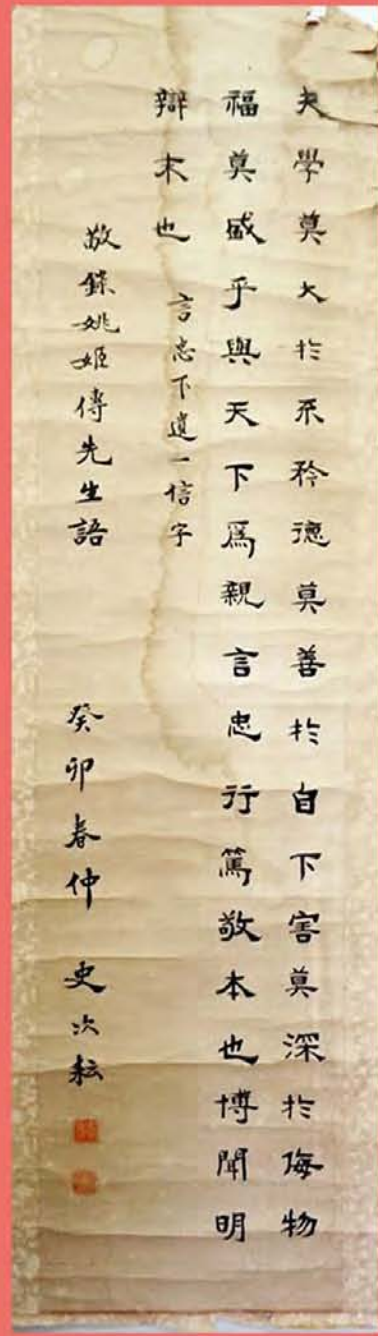 夫學莫大於不矜德莫善於自下害莫深於侮物
福莫盛乎與天下為親言忠行篤敬本也博聞明
辯末也 言忠下遺一信字
敬錄姚姬傳先生語 癸卯春仲 史次耘